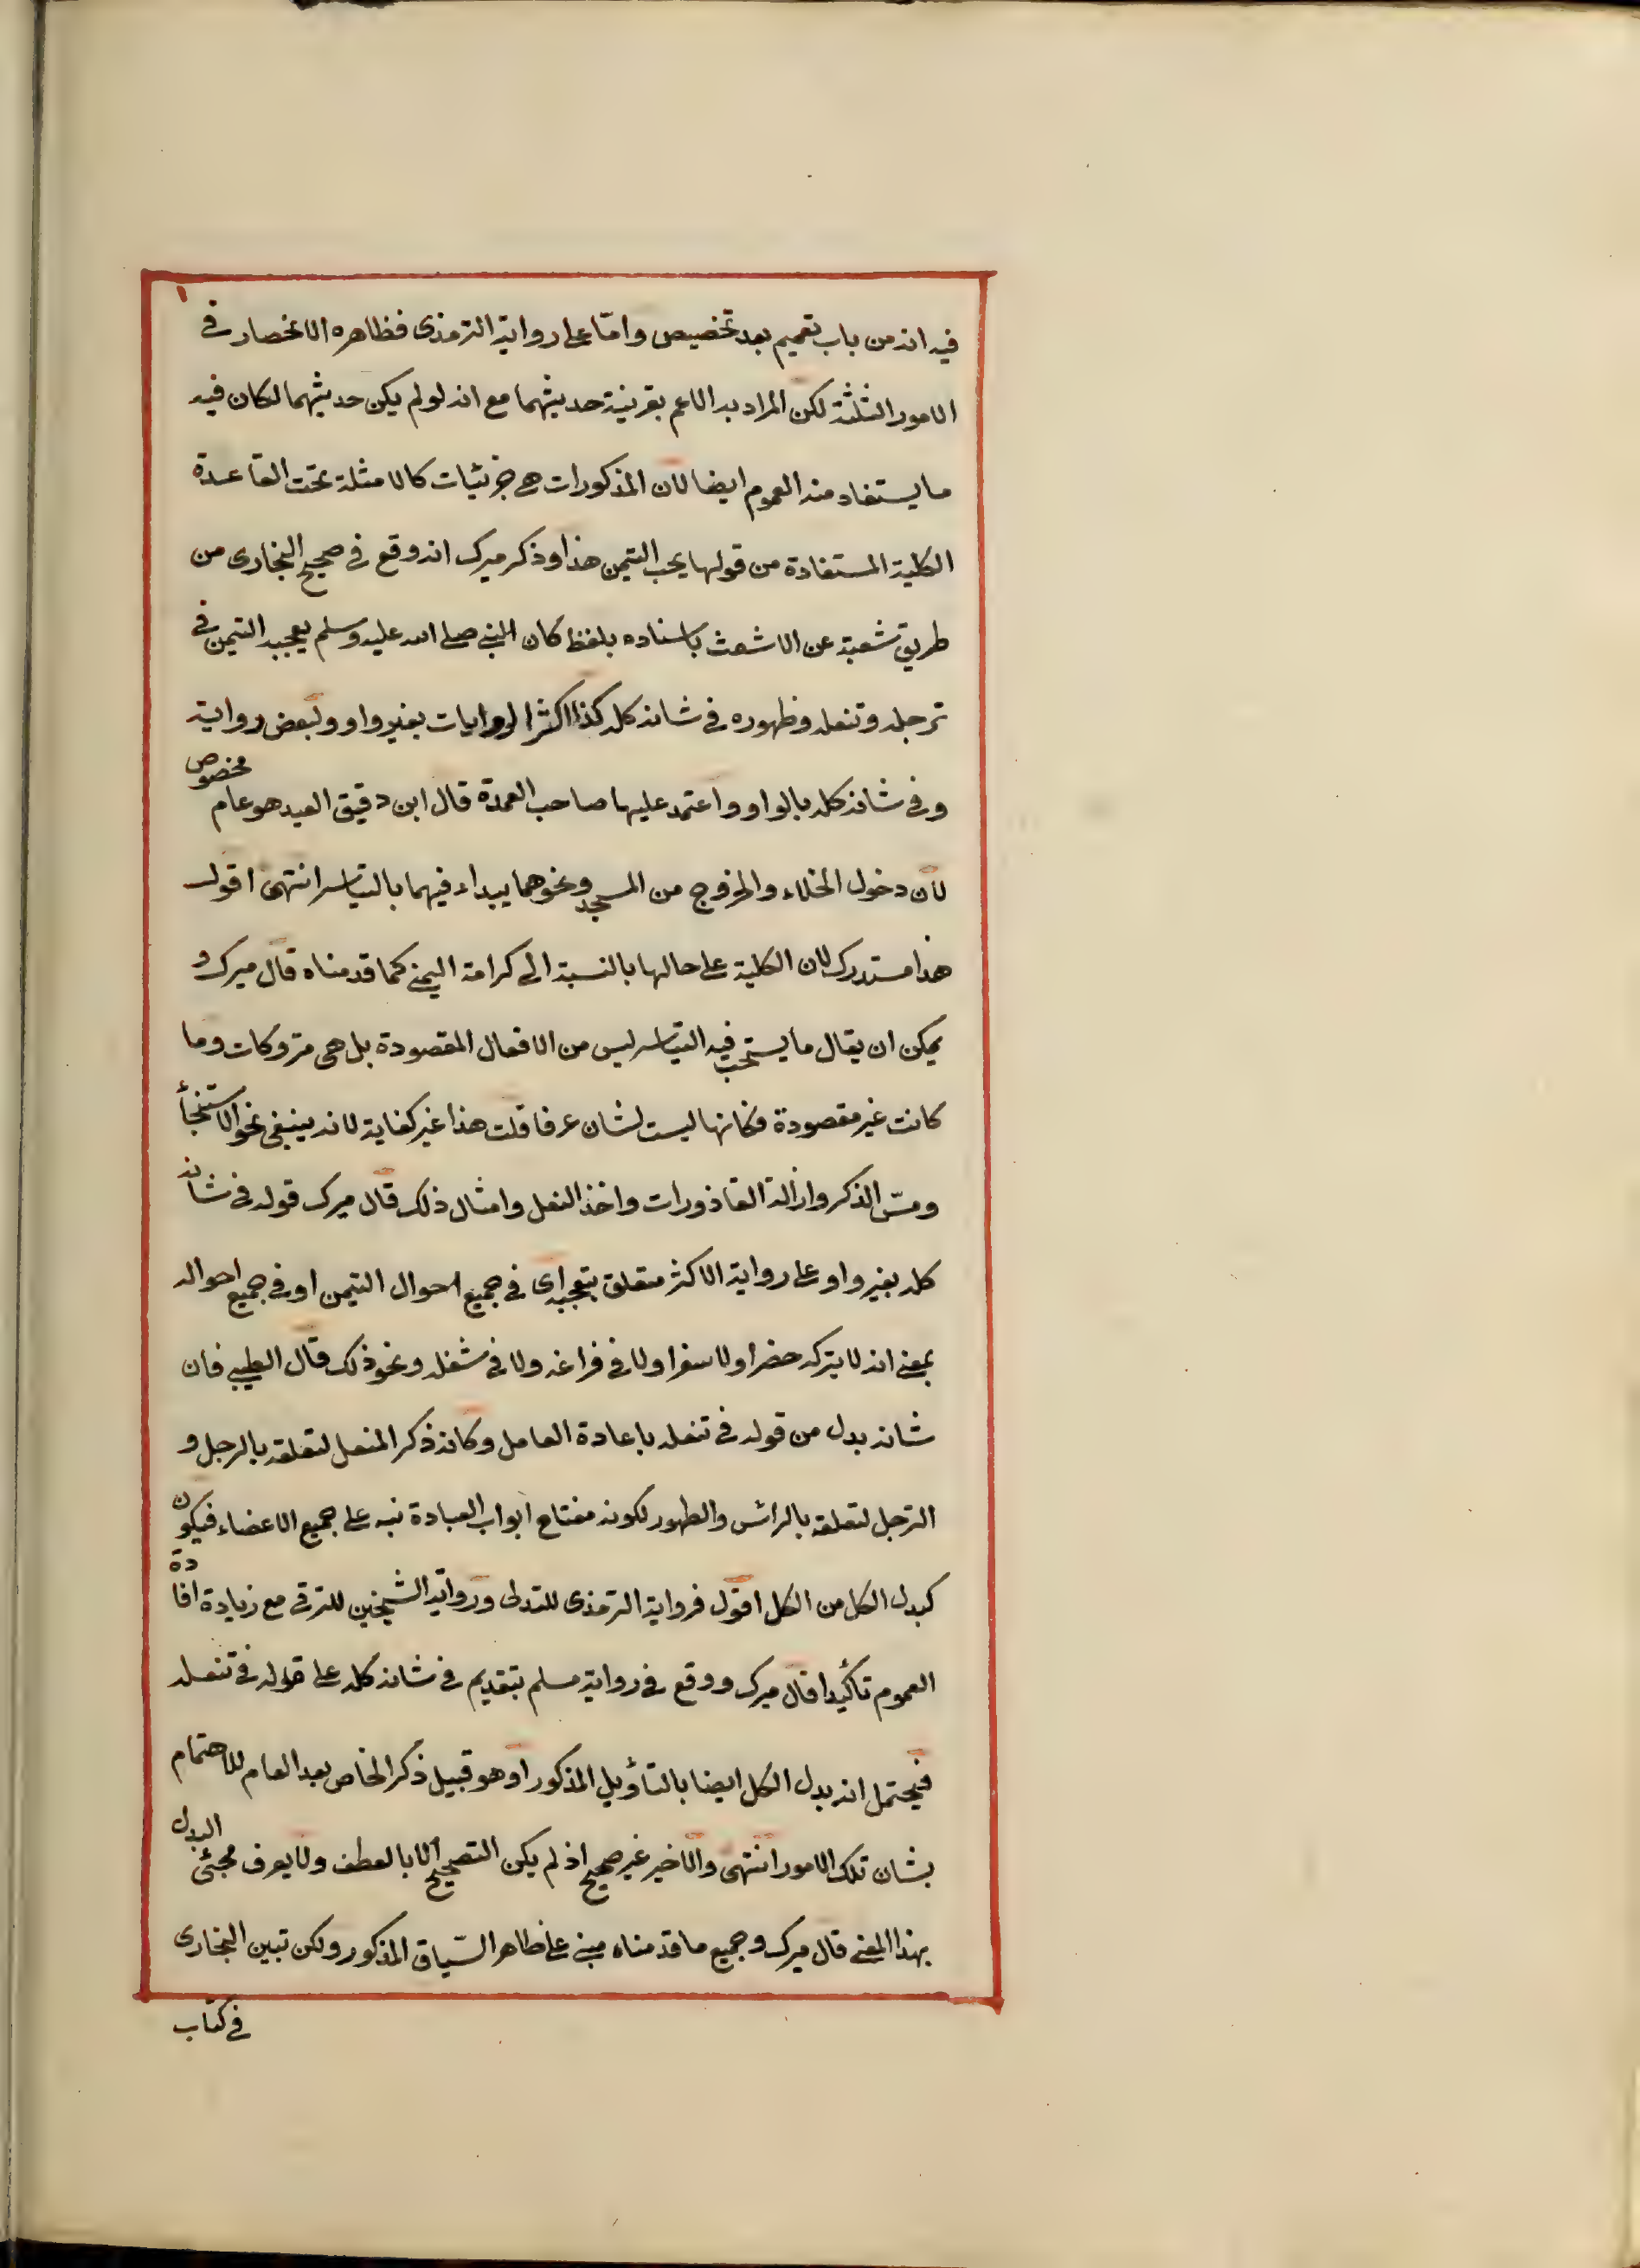 فيه انه من باب تعميم بعد تخصيص وامّا على رواية الترمذى فظاهره الانحصار فى
الامور الثلثة لكن المراد به الاعم بقرينة حديثهما مع انه لو لم يكن حديثهما لكان فيه
ما يستفاد منه العموم ايضا لان المذكورات هى جزئيات كالامثلة تحت القاعدة
الكلية المستفادة من قولها يحب التيمن هذا وذكر ميرك انه وقع فى صحيح البخارى من
طريق شعبة عن الاشعث باسناده بلفظ كان النبى صلى الله عليه وسلم يعجبه التيمن فى
ترجله وتنعله وطهوره فى شانه كله كذا اكثر الروايات بغير واو ولبعض رواية
وفى شانه كله بالواو واعتمد عليها صاحب العمدة قال ابن دقيق العيد هو عام مخصوص
لان دخول الخلاء والخروج من المسجد ونحوهما يبداء فيهما بالتياسر انتهى اقول
هذا مستدرك لان الكلية على حالها بالنسبة الى كرامة اليمنى كما قدمناه قال ميرك و
يمكن ان يقال ما يستحب فيه التياسر ليس من الافعال المقصودة بل هى متروكات وما
كانت غير مقصودة فكانها ليست لشان عرفا قلت هذا غير كفاية لانه ينبغى نحو الاستنجأ
ومسّ الذكر وازالة القاذورات واخذ النعل وامثال ذلك قال ميرك قوله فى شانه
كله بغير واو على رواية الاكثر متعلق بيعجبه اى فى جميع احوال التيمن او فى جميع احواله
بمعنى انه لا يتركه حضرا ولا سفرا ولا فى فراغه ولا فى شغله ونحو ذلك قال الطيبى فان
شانه بدل من قوله فى تنعله باعادة العامل وكانه ذكر المنعل لتعلقه بالرجل و
الترجل لتعلقه بالرائس والطهور لكونه مفتاح ابواب العبادة نبه على جميع الاعضاء فيكون
كبدل الكل من الكل اقول فرواية الترمذى للتدلى ورواية الشيخين للترقى مع زيادة افادة
العموم تأكيدا قال ميرك ووقع فى رواية مسلم بتقديم فى شانه كله على قوله فى تنعله
فيحتمل انه بدل الكل ايضا بالتأويل المذكور او هو قبيل ذكر الخاص بعد العام للاهتمام
بشان تلك الامور انتهى والاخير غير صحيح اذ لم يكن التصحيح الا بالعطف ولا يعرف مجئى البدل
بهذا المعنى قال ميرك وجميع ما قدمناه مبنى على ظاهر السّياق المذكور ولكن تبين البخارى
فى كتاب